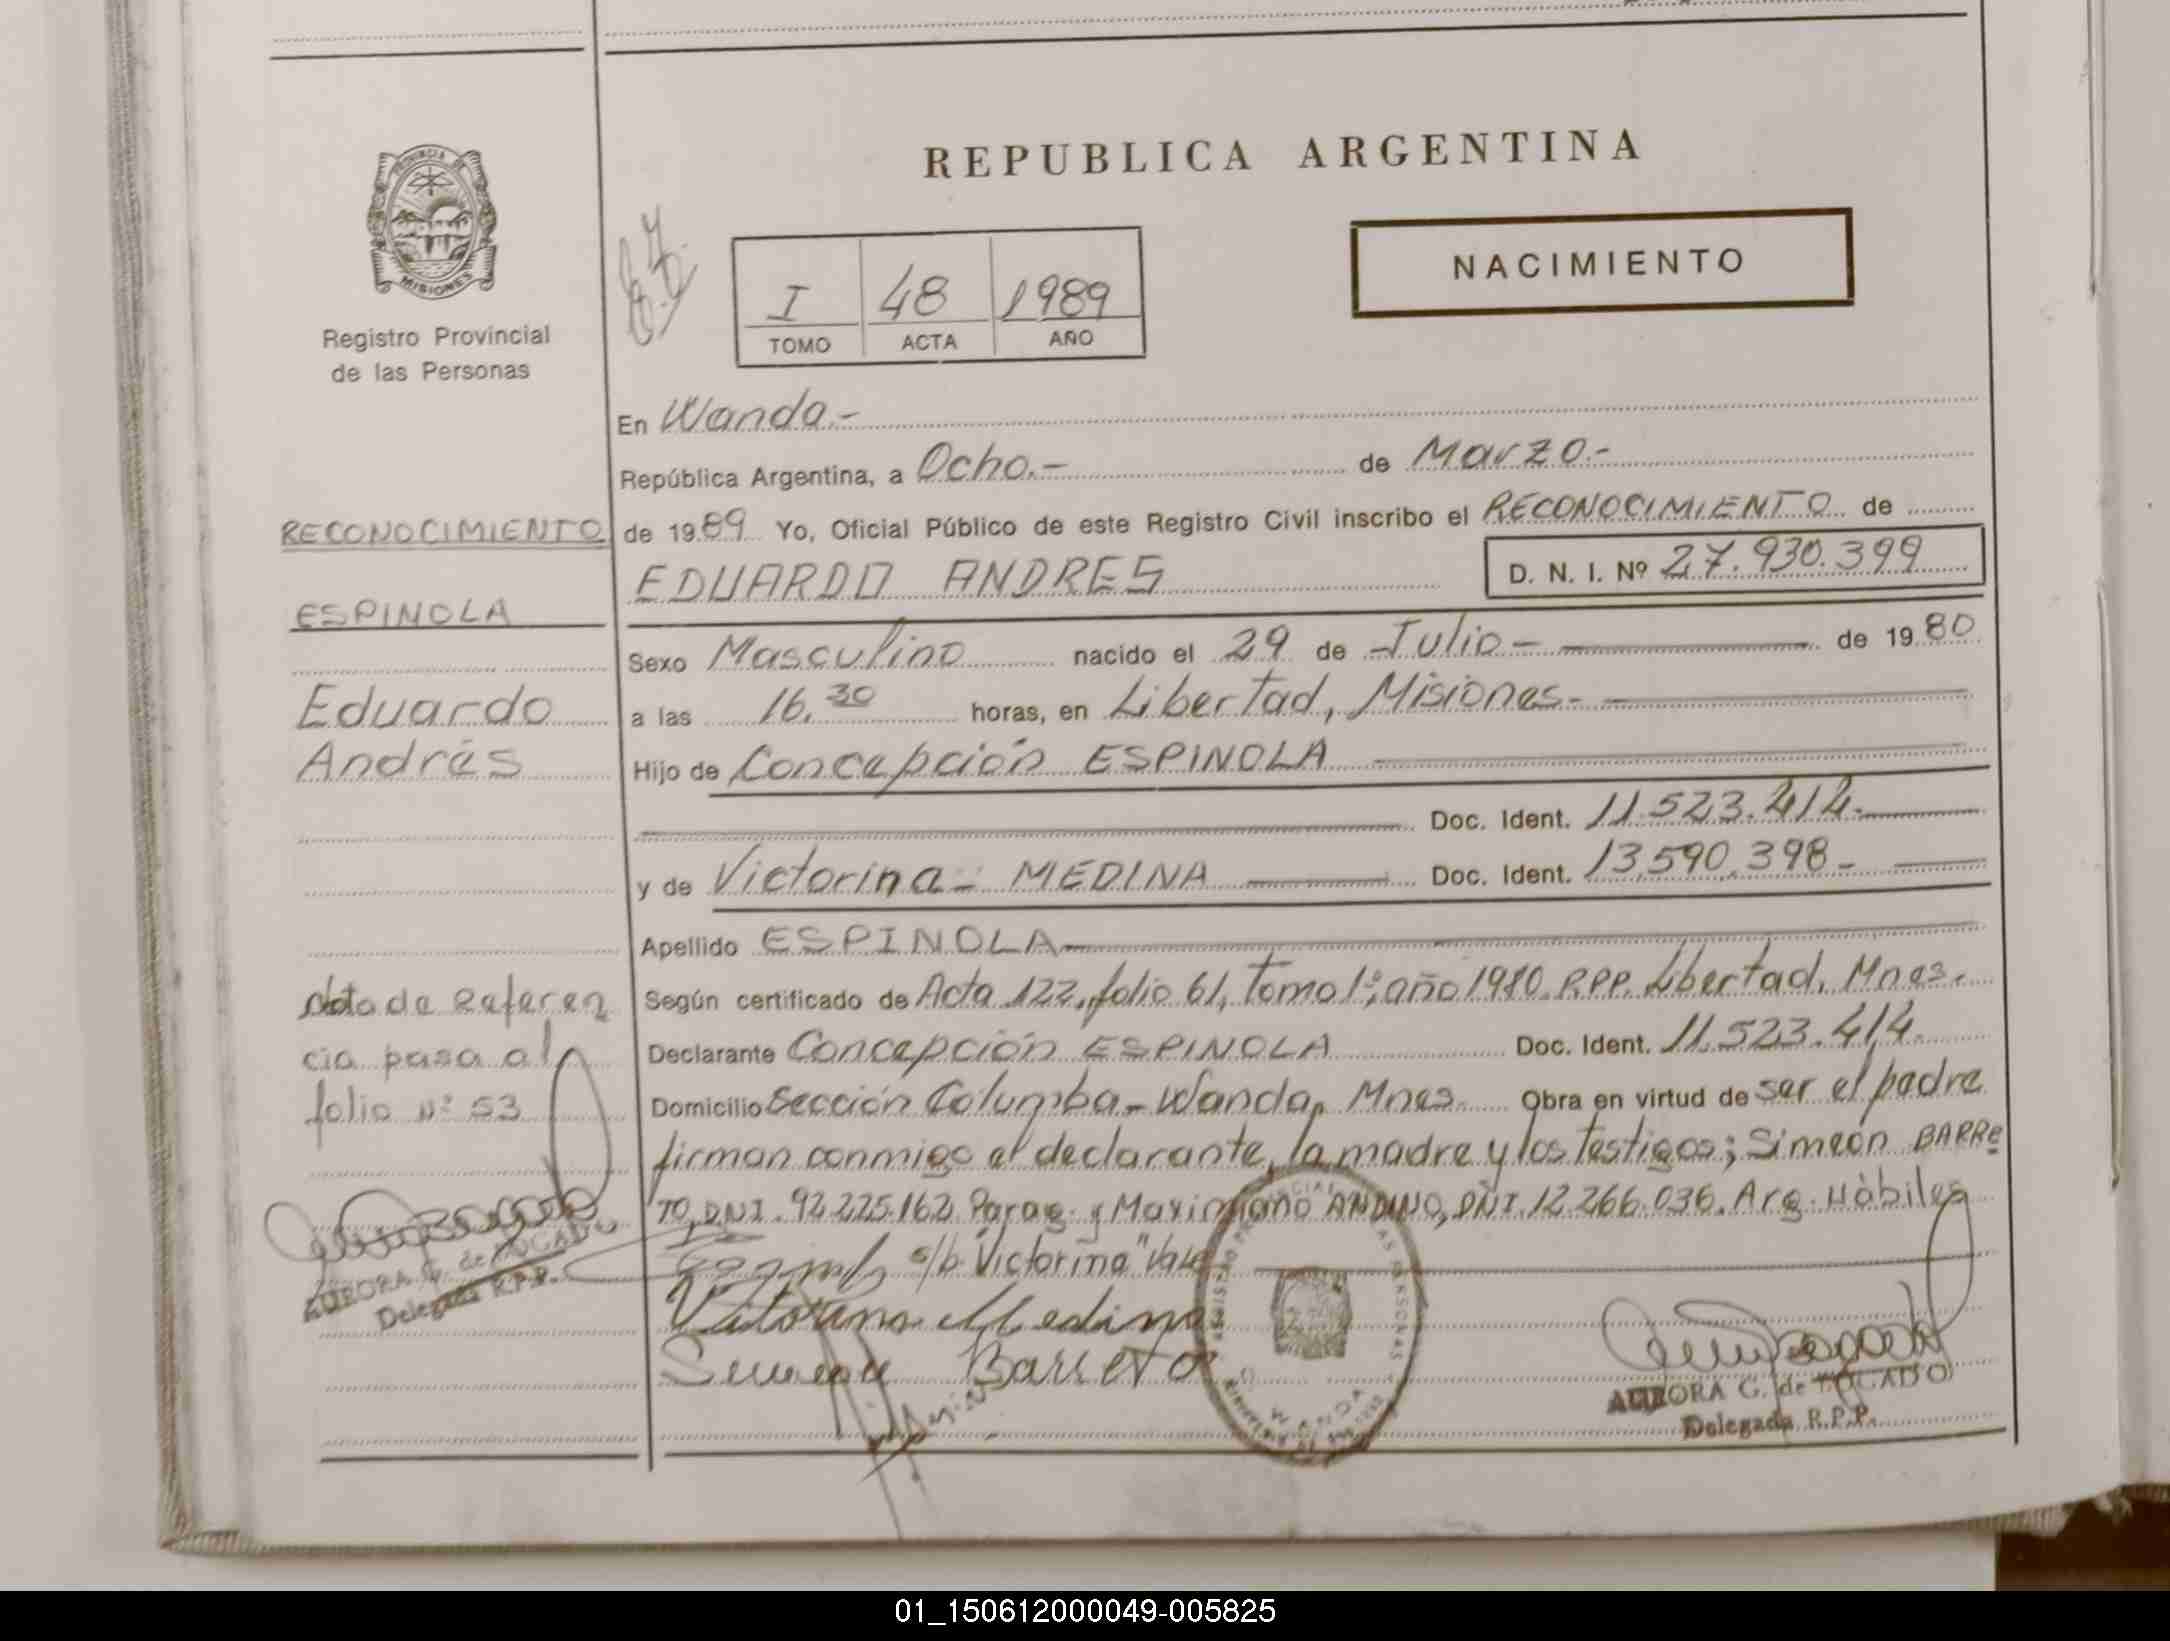 REPUBLICA ARGENTINA
PROVINCIA DE
MISIONES
Registro Provincial
de las Personas
NACIMIENTO
I 48 1989
TOMO ACTA AÑO
En Wanda.-
República Argentina, a Ocho.- de Marzo.-
RECONOCIMIENTO
de 1989 Yo, Oficial Público de este Registro Civil inscribo el RECONOCIMIENTO de
EDUARDO ANDRES D. N. I. Nº 27.930.399
ESPINOLA
Sexo Masculino nacido el 29 de Julio - de 1980
Eduardo
a las 16.30 horas, en Libertad, Misiones.-
Andrés
Hijo de Concepción ESPINOLA
Doc. Ident. 11.523.414.
y de Victorina - MEDINA Doc. Ident. 13.590.398-
Apellido ESPINOLA
Nota de Referen
Según certificado de Acta 122, folio 61, Tomo 1º, año 1980. R.P.P. Libertad, Mnes.
cia pasa al
Declarante Concepción ESPINOLA Doc. Ident. 11.523.414.
folio Nº 53
Domicilio Sección Columba - Wanda, Mnes. Obra en virtud de ser el padre
firman conmigo el declarante, la madre y los testigos; Simeón BARRE
TO, DNI. 92.225.162 Parag. y Maximiano ANDINO, DNI. 12.266.036. Arg. Hábiles
s/b "Victorina" Vale
Medina
Barreto
WANDA
AURORA G. de TOCADO
Delegada R.P.P.
AURORA G. de TOCADO
Delegada R.P.P.
01_150612000049-005825